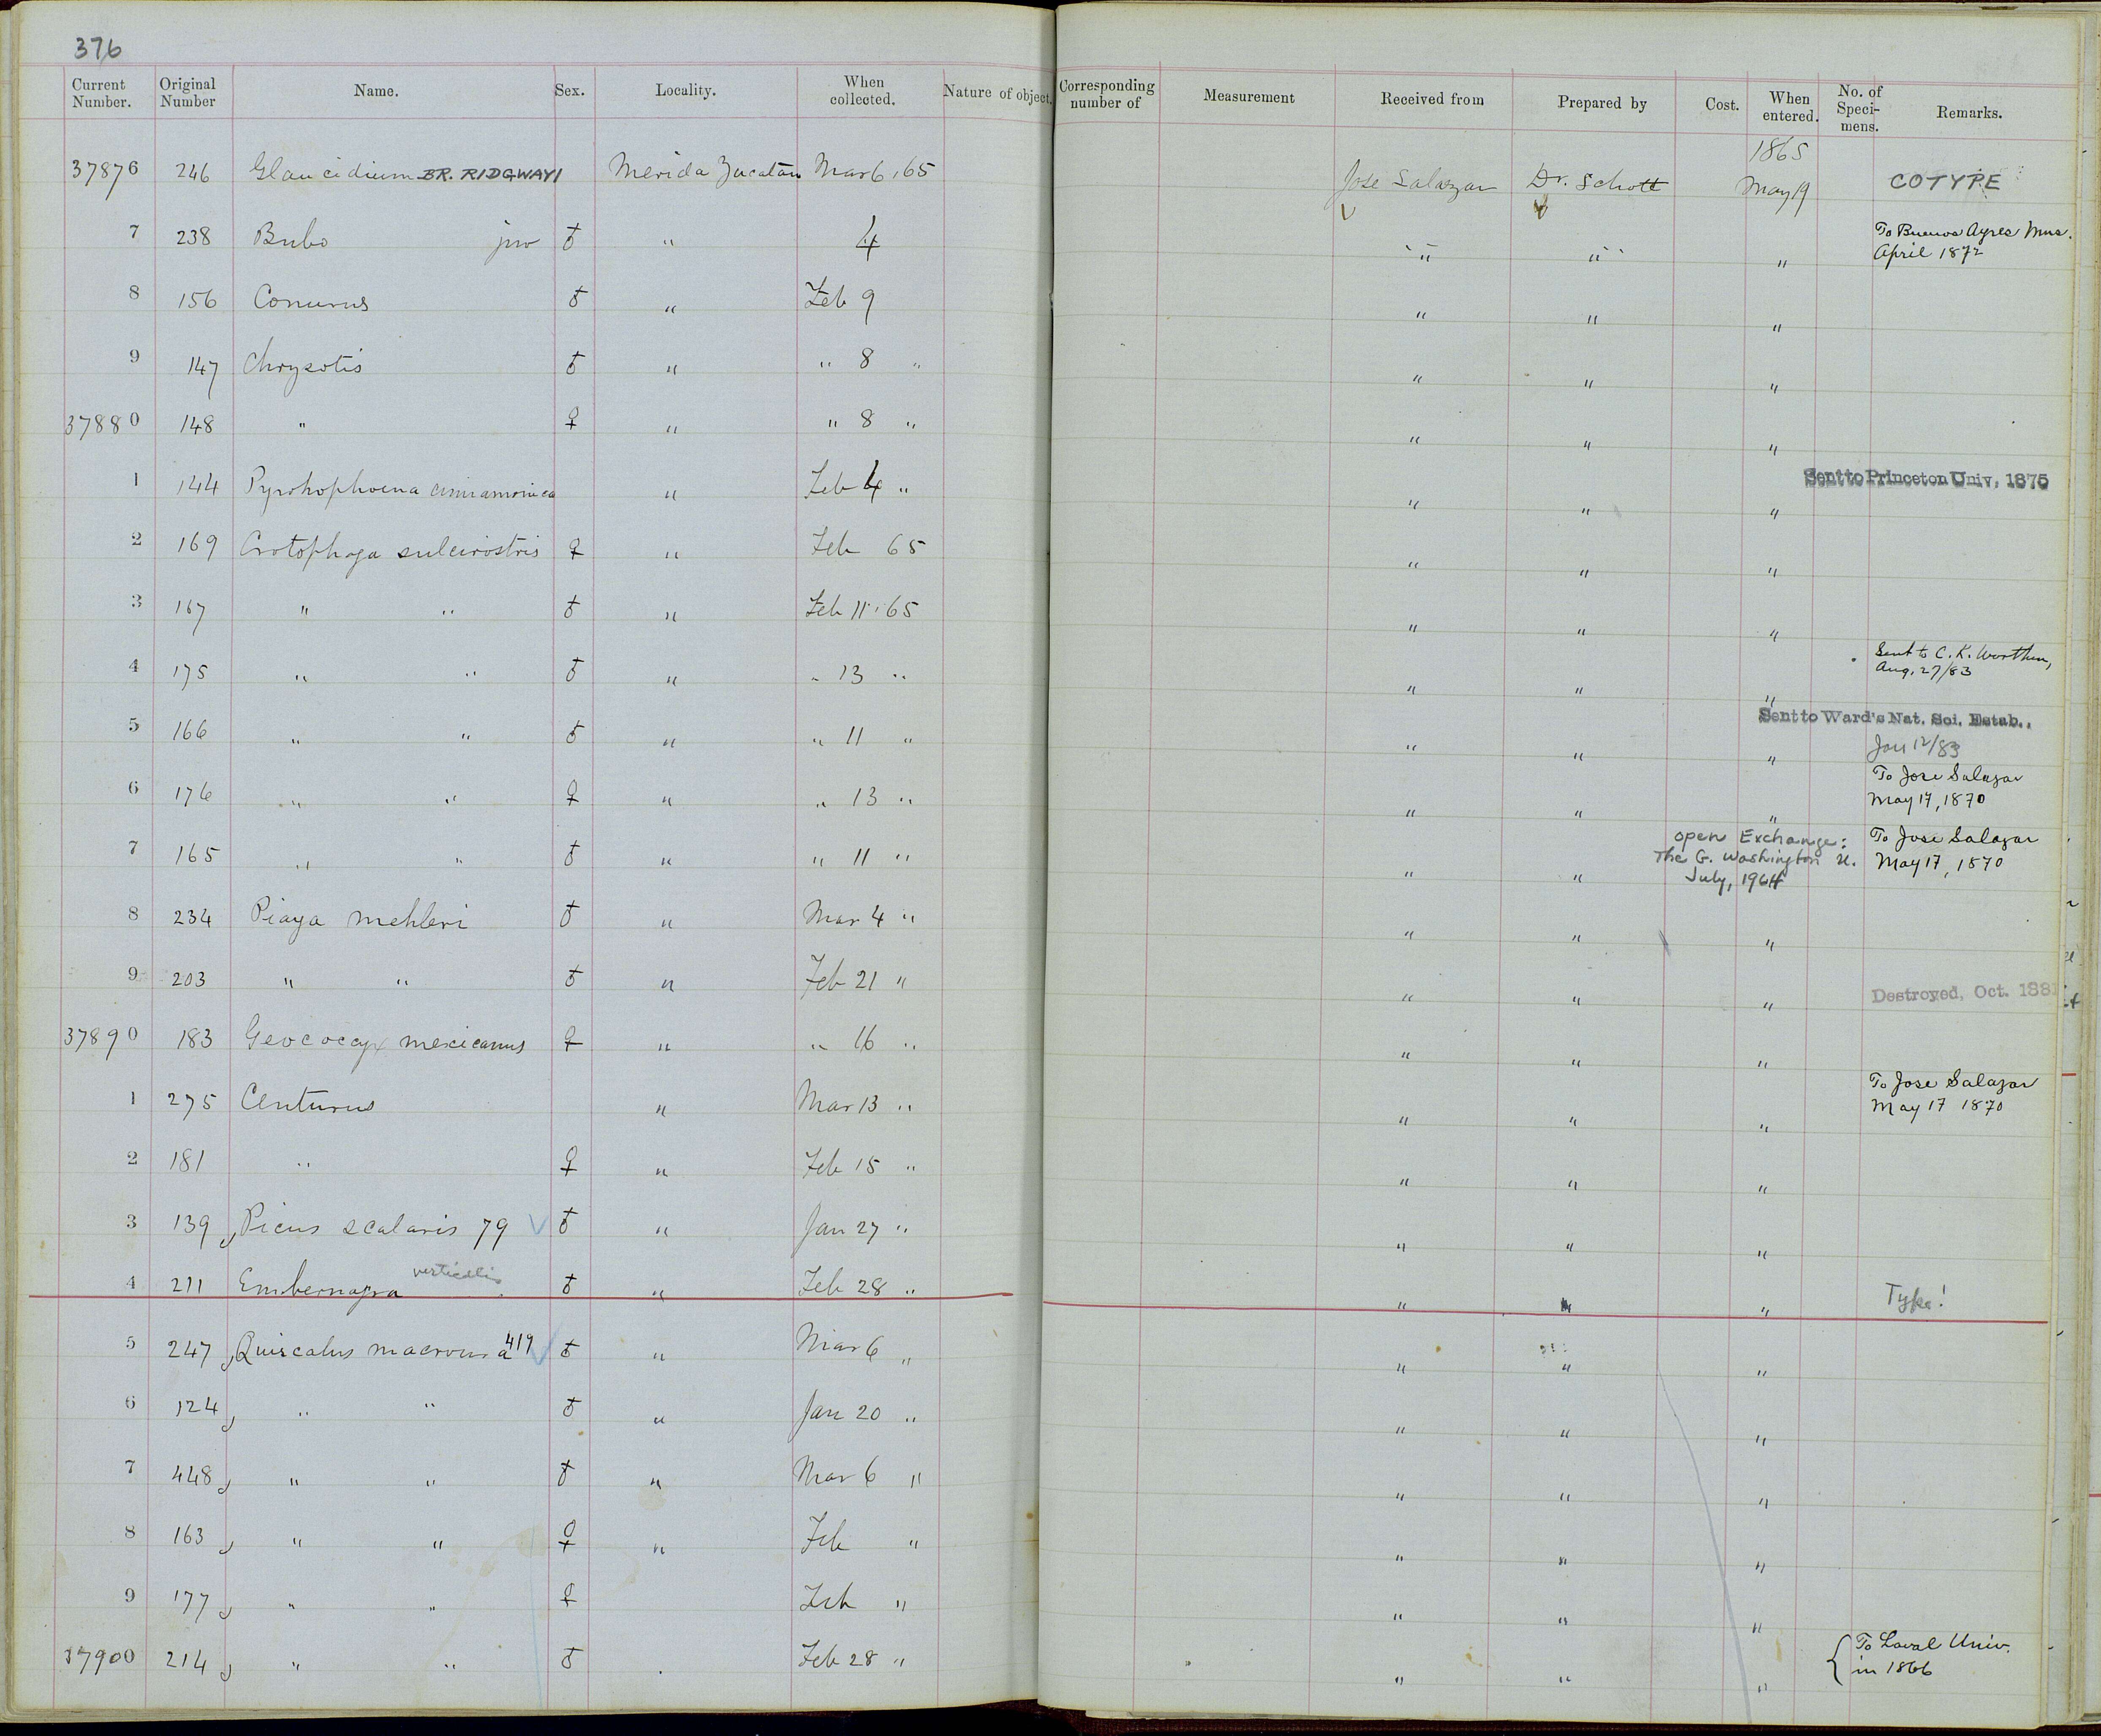 376
Current Number. Original Number Name. Sex. Locality. When collected. Nature of object. Corresponding number of Measurement Received from Prepared by Cost. When entered. No. of Speci- mens. Remarks.
37876 246 Glaucidium BR. RIDGWAYI Merida Yucatan Mar 6, 65 Jose Salazar Dr. Schott 1865 May 19 COTYPE
7 238 Bubo juv ♂ " 4 " " " To Buenos Ayres Mus. April 1872
8 156 Conurus ♂ " Feb 9 " " "
9 147 Chrysotis ♂ " " 8 " " " "
37880 148 " ♀ " " 8 " " " "
1 144 Pyrrhophoena cinnamonica " Feb 4 " " " " Sent to Princeton Univ, 1875
2 169 Crotophaga sulcirostris ♀ " Feb 65 " " "
3 167 " " ♂ " Feb 11, 65 " " "
4 175 " " ♂ " " 13 " " " " Sent to C. K. Worthen, Aug. 27/83
5 166 " " ♂ " " 11 " " " " Sent to Ward's Nat. Sci. Estab., Jan 12/83
6 176 " " ♀ " " 13 " " " " To Jose Salazar May 17, 1870
7 165 " " ♂ " " 11 " " " open Exchange: The G. Washington U. July, 1964 To Jose Salazar May 17, 1870
8 234 Piaya mehleri ♂ " Mar 4 " " " "
9 203 " " ♂ " Feb 21 " " " " Destroyed, Oct. 188
37890 183 Geococcyx mexicanus ♀ " " 16 " " " "
1 275 Centurus " Mar 13 " " " " To Jose Salazar May 17 1870
2 181 " ♀ " Feb 15 " " " "
3 139 Picus scalaris 79 ♂ " Jan 27 " " " "
4 211 Embernagra verticalis ♂ " Feb 28 " " " " Type!
5 247 Quiscalus macroura 419 ♂ " Mar 6 " " " "
6 124 " " ♂ " Jan 20 " " " "
7 448 " " ♂ " Mar 6 " " " "
8 163 " " ♀ " Feb " " " "
9 177 " " ♀ Feb " " " "
37900 214 " " ♂ Feb 28 " " " " { To Laval Univ. in 1866